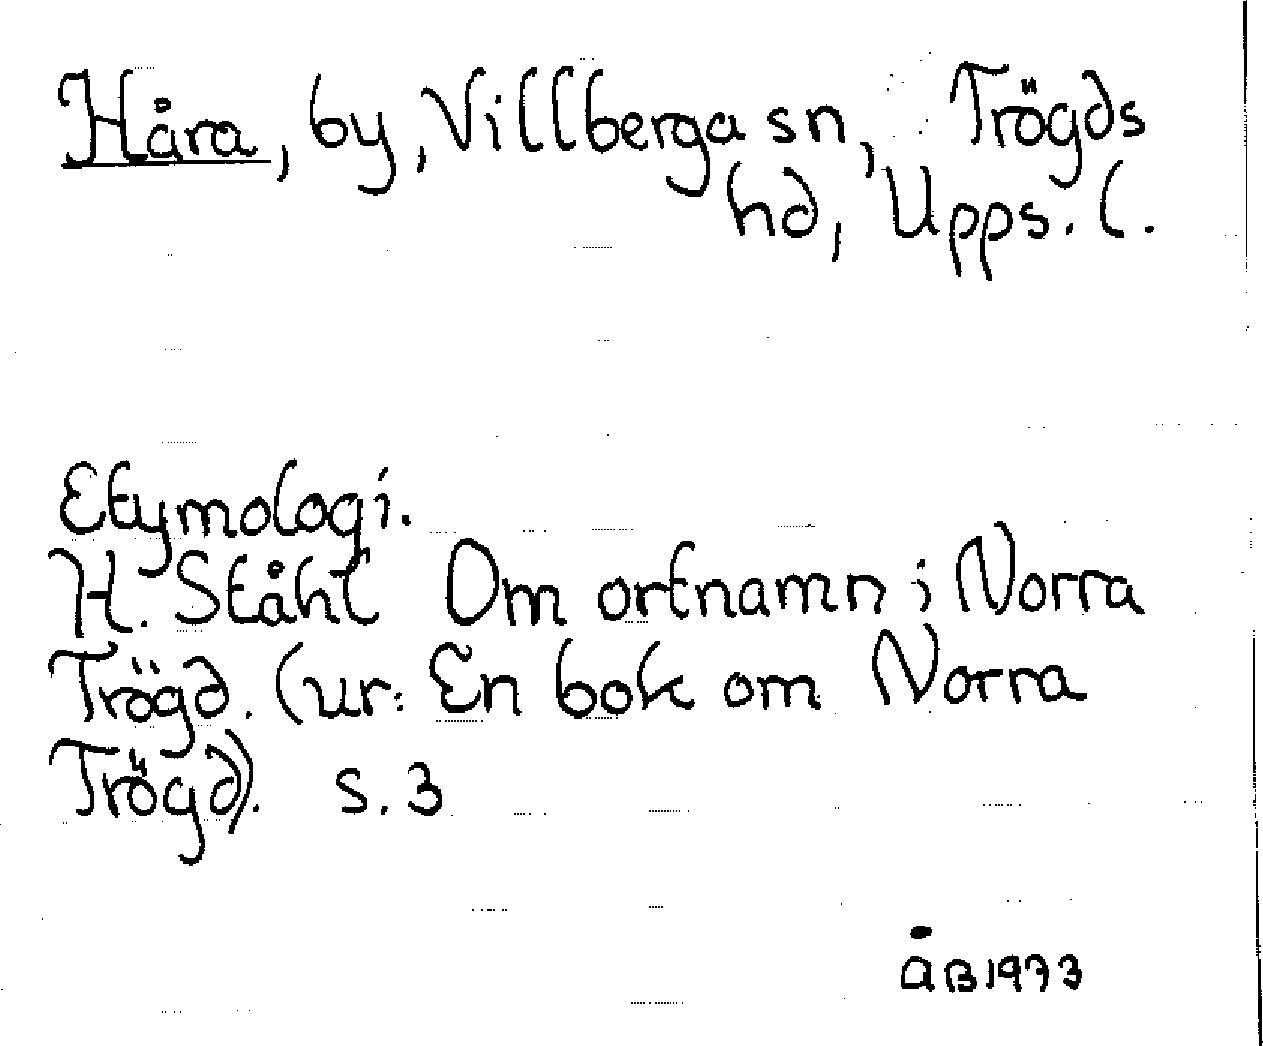 Håra, by, Villberga sn, Trögds
hd, Upps. l.
Etymologi.
H. Ståhl Om ortnamn i Norra
Trögd. (ur: En bok om Norra
Trögd). s. 3
ÅB 1973